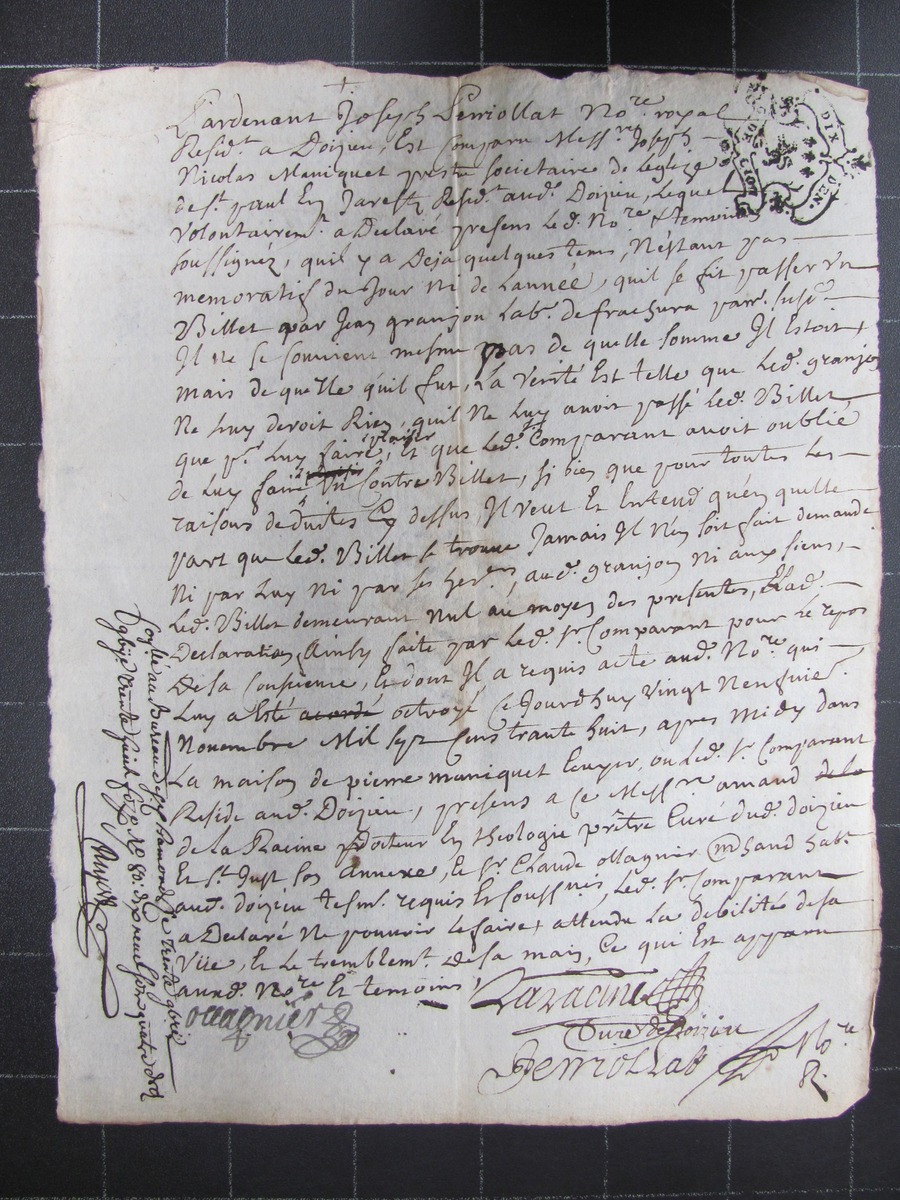 Pardevant Joseph Perriollat No.re royal
Resid.t a Doizieu, Est Comparu Mess.re Joseph
Nicolas Maniquet prestre societaire de leglize
de S.t paul En Jarestz Resid.t aud. Doizieu, Lequel
Volontairem.t a Declaré presens Led. No.re & temoins
soussignéz, quil y a Deja quelques tems, N'estant pas
memoratif du Jour ni de Lannée, quil se fit passer Un
Billet par Jean granjon Lab.r de frachura parr. susd.
Il ne se souvient mesme pas de quelle somme Il Estoit,
mais de quelle quil fut, La Verité Est telle que Led. granjon
Ne Luy devoit Rien, quil Ne Luy avoit passé Led. Billet
que p.r Luy faire plaisir, Et que Led. Comparant avoit oublié
de Luy faire Un Contre Billet, si bien que pour toutes Les
raisons deduites Cy dessus, Il Veut Et Entend qu'en quelle
part que Led. Billet se trouve Jamais Il N'en soit fait demande
Ni par Luy Ni par ses her.s aud. granjon Ni aux siens,
Led. Billet demeurant Nul au moyen des presentes, Lad.
Declaration Ainsy faite par Led. s.r Comparant pour Le repos
de sa Consience, Et dont Il a requis acte aud. No.re qui
Luy a Esté acordé octroyé Ce Jourdhuy Vingt Neufvie.
Novembre Mil sept Cens trante huit, apres Midy dans
La maison de pierre maniquet Ecuyer, ou Led. s.r Comparant
Reside aud. Doizieu, presens a Ce Mess.re amand de la
de la Racine Docteur En theologie prêtre Curé dud. doizieu
Et S.t Just son Annexe, Et s.r Claude ollagnier m.chand hab.t
aud. doizieu tesm. requis Et soussignés, Led. s.r Comparant
a Declaré Ne pouvoir Le faire attendu La debilité de sa
Vüe, Et Le tremblem.t de sa main, Ce qui Est apparu
aud. No.re Et temoins
Laracine
ollagnier
Curé de Doizieu
Perriollat No.re
R.
au Bureau de S.t chamond Le trente 9bre
trente huit fol. r.o 80.
DIX DEN.
LION